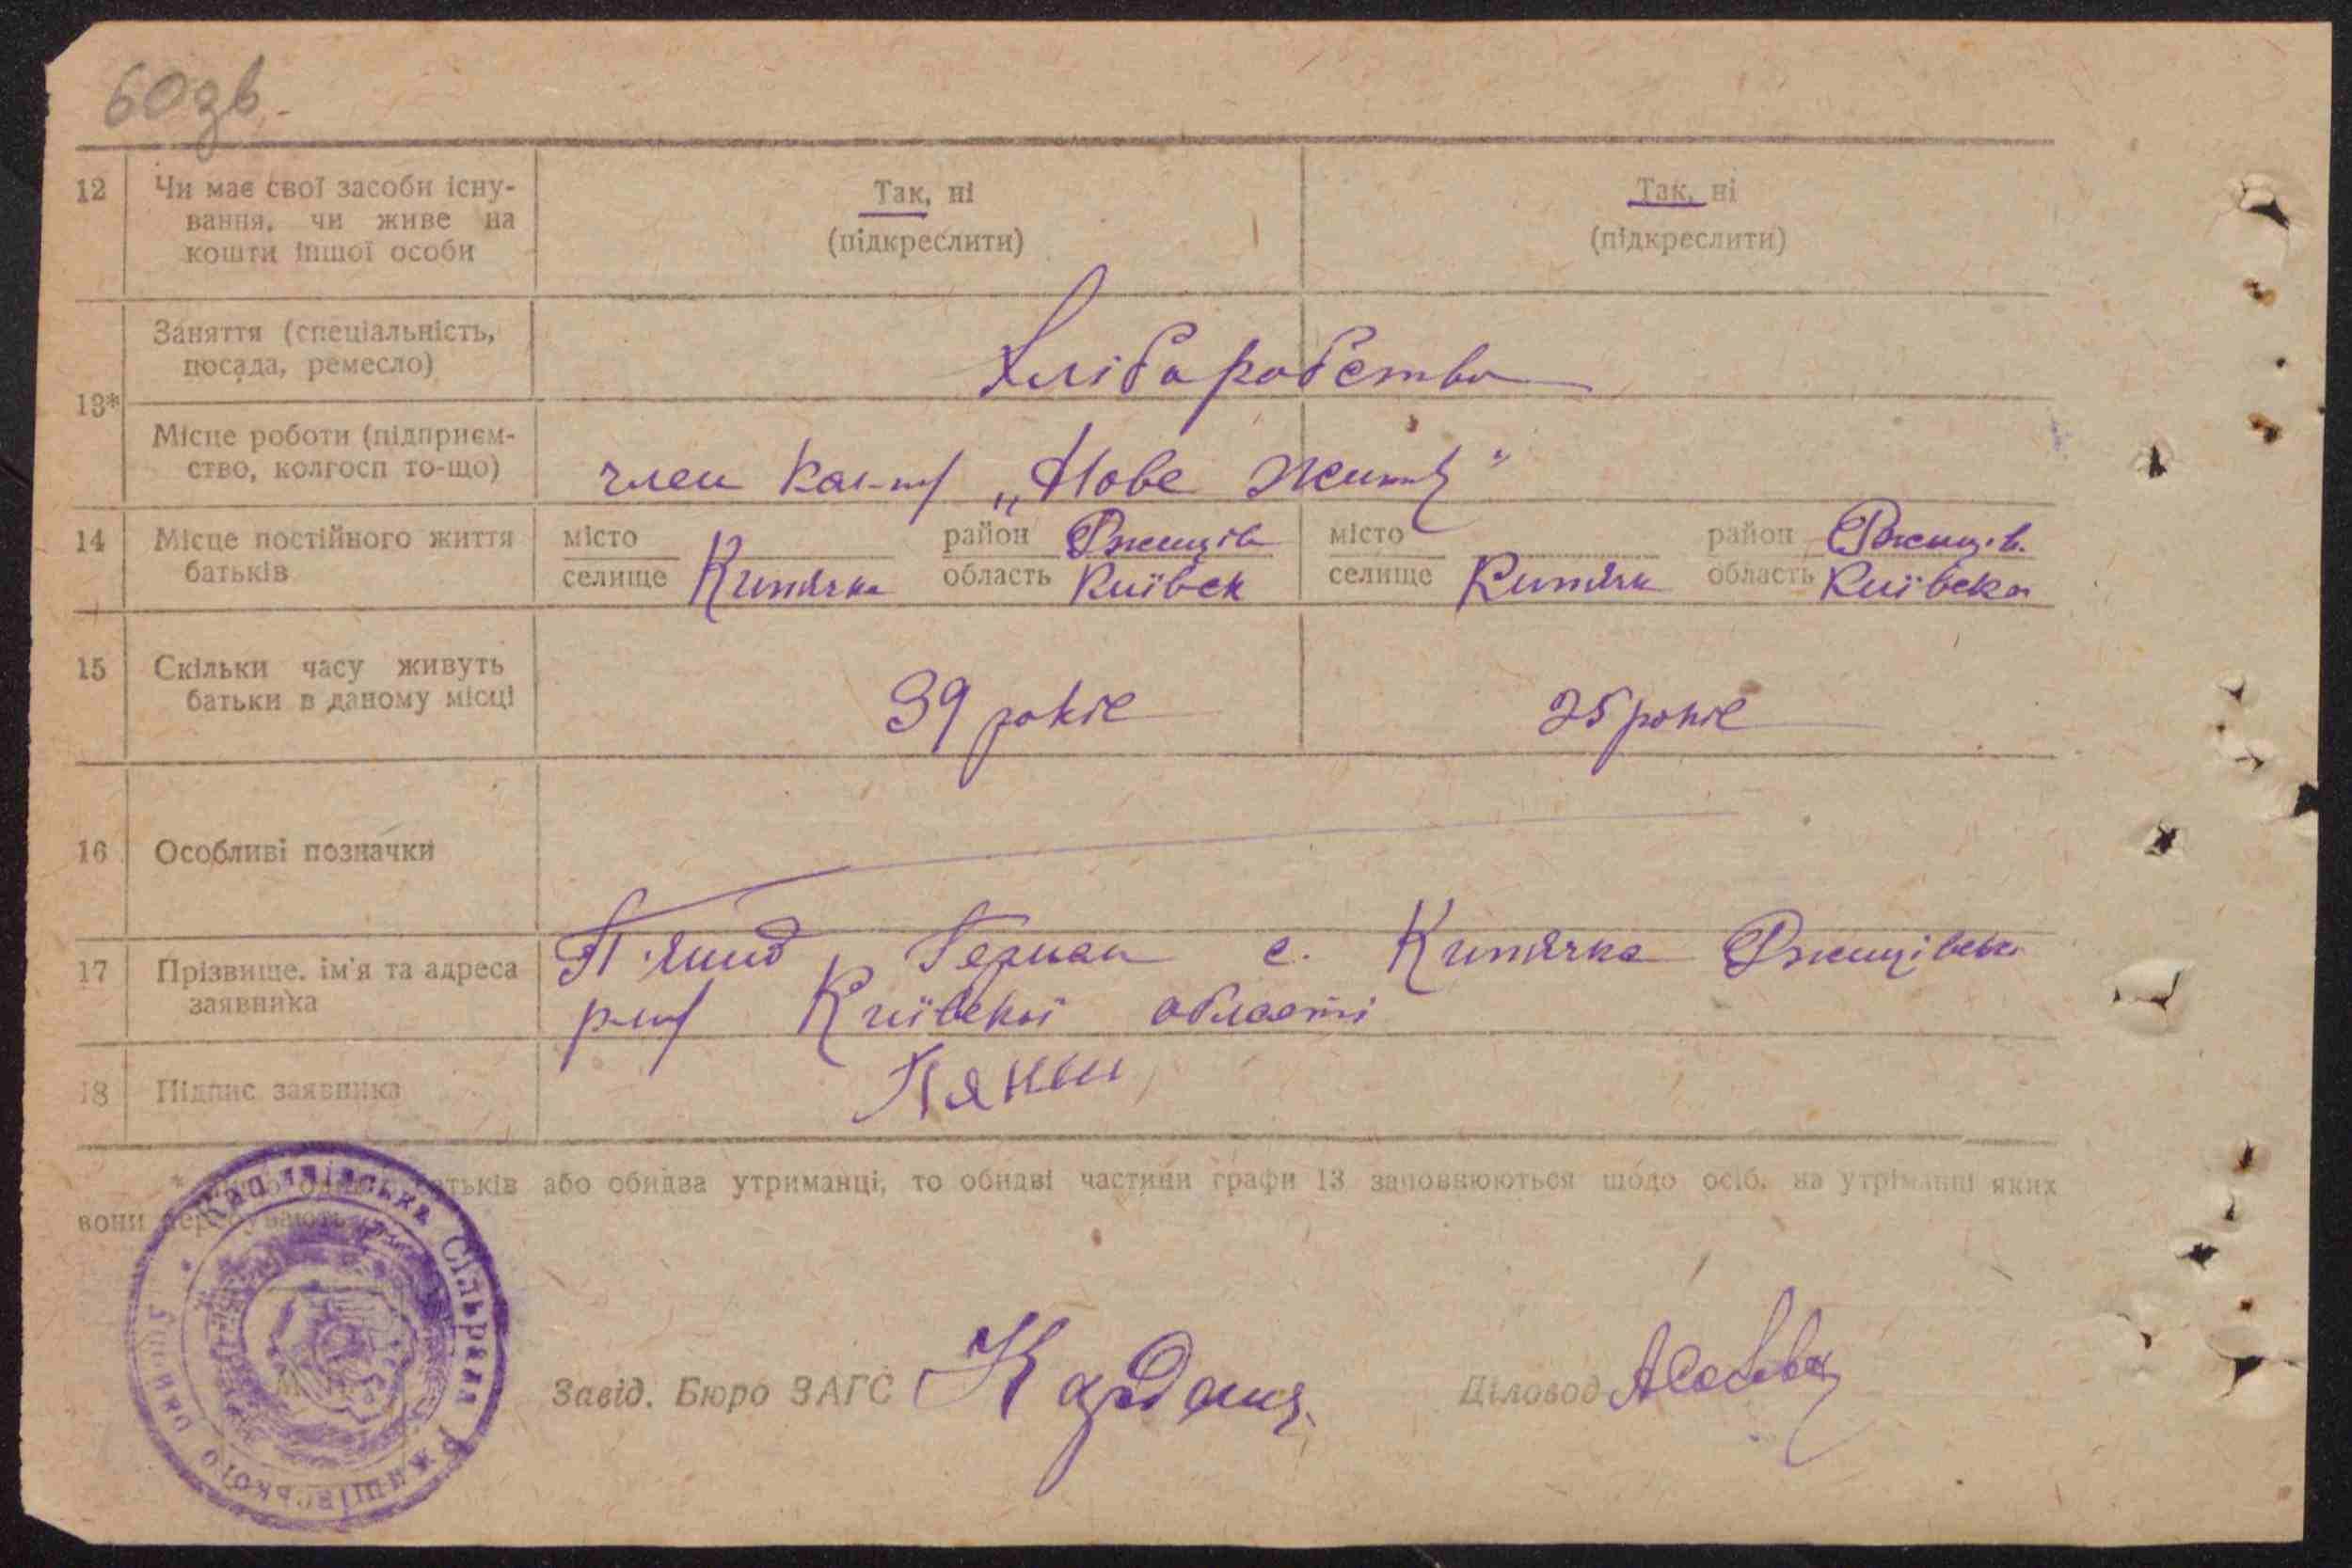 60зв.
12 Чи має свої засоби існу-
вання, чи живе на
кошти іншої особи
Так, ні
(підкреслити)
Так, ні
(підкреслити)
13*
Заняття (спеціальність,
посада, ремесло)
Хліборобство
Місце роботи (підприєм-
ство, колгосп то-що)
член „Нове Життя"
14 Місце постійного життя
батьків
місто
селище Китяека
район Ржищів
область Київск
місто
селище
район Ржищів.
область Київска
15 Скільки часу живуть
батьки в даному місці
39 років
25 років
16 Особливі позначки
17 Прізвище, ім'я та адреса
заявника
Герман с. Ржищівськ
р-ну Київської області
18 Підпис заявника
* батьків або обидва утриманці, то обидві частини графи 13 заповнюються щодо осіб, на утріманні яких
вони перебувають.
Сільрада Ржищівського району
Завід. Бюро ЗАГС
Діловод